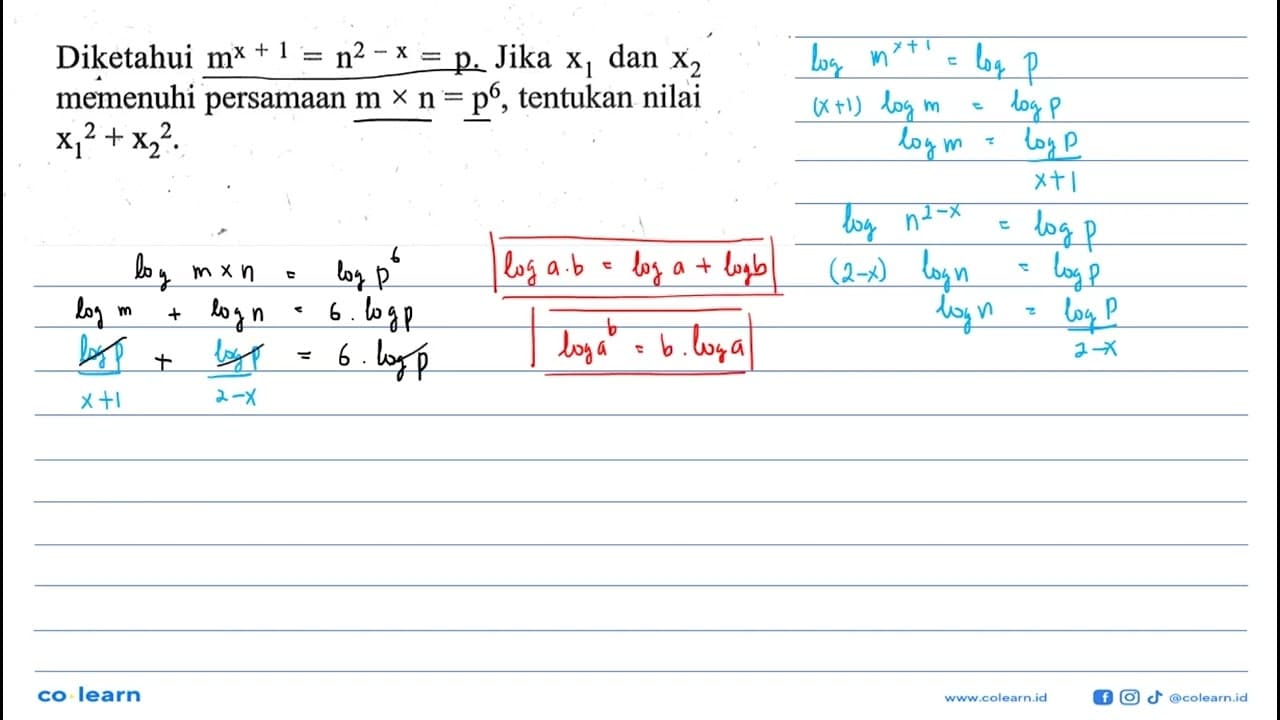 Diketahui m^{x + 1} = n^{2 – x} = p. Jika x₁ dan x₂
memenuhi persamaan m × n = p⁶, tentukan nilai
x₁² + x₂².
log m^{x+1} = log p
(x+1) log m = log p
log m = log p
x+1
log n^{2-x} = log p
(2-x) log n = log p
log n = log p
2-x
log m × n = log p⁶
log m + log n = 6 . log p
log p + log p = 6 . log p
x+1 2-x
log a.b = log a + log b
log a^b = b . log a
co·learn
www.colearn.id
@colearn.id